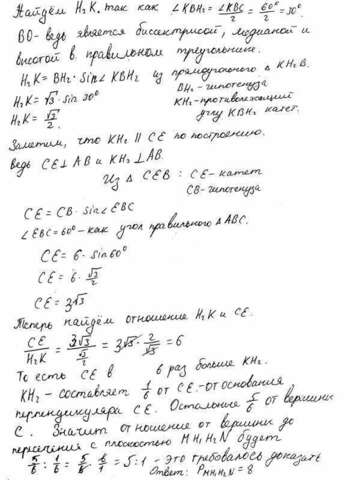 Найдём H₂K. так как ∠KBH₂ = ∠KBC/2 = 60°/2 = 30°.
BO - ведь является биссектрисой, медианой и
высотой в правильном треугольнике.
H₂K = BH₂ · sin∠KBH₂ из прямоугольного △KH₂B.
BH₂ - гипотенуза
H₂K = √3 · sin 30°
KH₂ - противолежащий
H₂K = √3/2.
углу KBH₂ катет.
Заметим, что KH₂ ∥ CE по построению.
ведь CE ⊥ AB и KH₂ ⊥ AB.
Из △ CEB : CE - катет
CB - гипотенуза
CE = CB · sin∠EBC
∠EBC = 60° - как угол правильного △ABC.
CE = 6 · sin 60°
CE = 6 · √3/2
CE = 3√3
Теперь найдём отношение H₂K и CE.
CE/H₂K = 3√3/(√3/2) = 3√3 · 2/√3 = 6
То есть CE в 6 раз больше KH₂.
KH₂ - составляет 1/6 от CE - от основания
перпендикуляра CE. Остальные 5/6 от вершины
C. Значит отношение от вершины до
пересечения с плоскостью MH₁H₂N будет
5/6 : 1/6 = 5/6 · 6/1 = 5:1 - это требовалось доказать
Ответ: P MH₁H₂N = 8